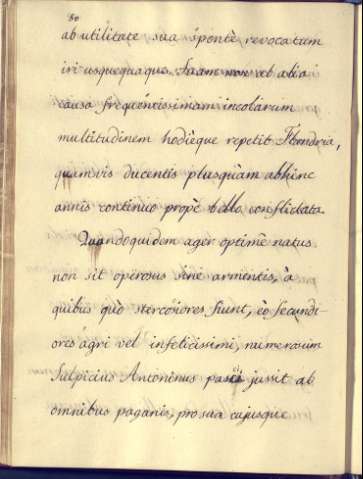 80
ab utilitate sua sponte revocatum
iri usquequaque. Suam non ab alia
causa frequentissimam incolarum
multitudinem hodieque repetit Flandria,
quamvis ducentis plusquàm abhinc
annis continuo propè bello conflictata.
Quandoquidem ager optimè natus
non sit operosus sine armentis, à
quibus quò stercosiores fiunt, eò fecundi-
ores agri vel infelicissimi, numerosum
Sulpicius Antoninus jussit ab
omnibus paganis, pro sua cujusque